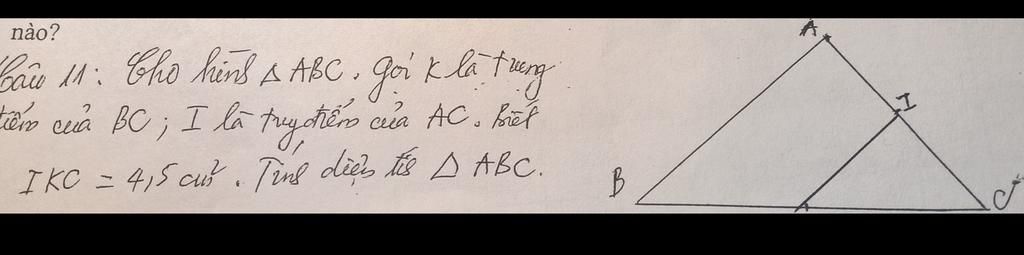 nào?
Câu 11: Cho hình △ ABC. Gọi K là trung
điểm của BC; I là trung điểm của AC. Biết
IKC = 4,5 cm². Tính diện tích △ ABC.
A
I
B
C